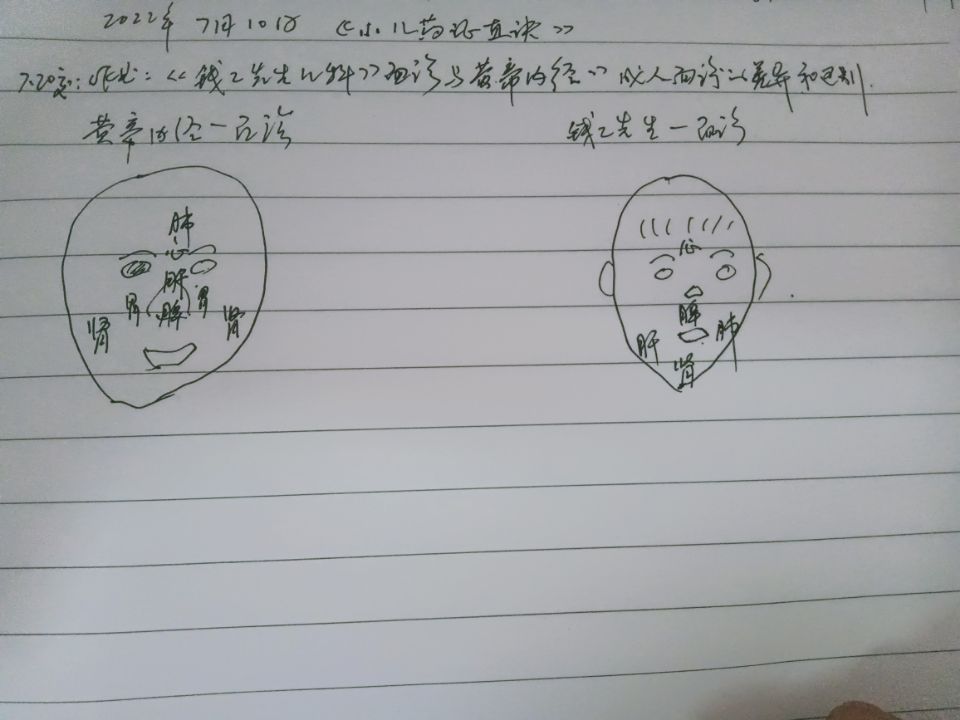 2022年 7月10日 《小儿药证直诀》
作业:《钱乙先生儿科》面诊与黄帝内经》成人面诊的差异和区别.
黄帝内经一面诊
钱乙先生一面诊
肺
心
肝
胃 脾 胃
肾 肾
心
脾
肝 肺
肾